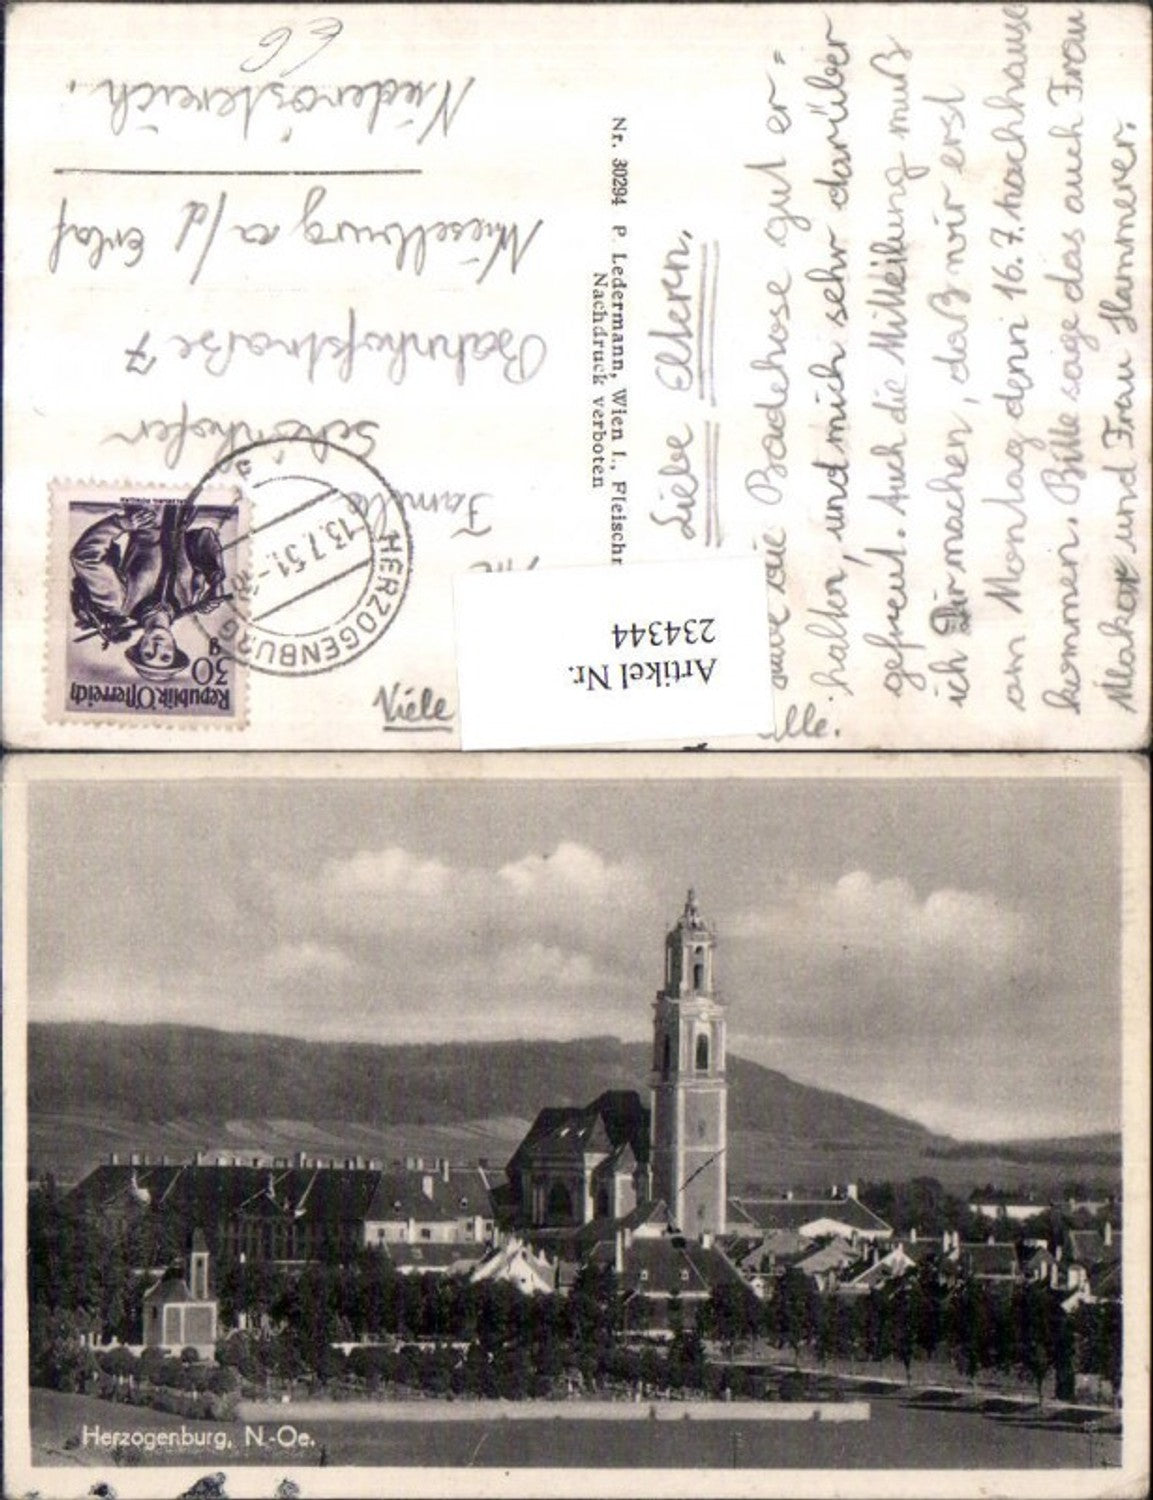 Liebe Eltern,
die Badehose gut er=
halten, und mich sehr darüber
gefreut. Auch die Mitteilung muß
ich Dir machen, daß wir erst
am Montag denn 16.7. nachhause
kommen. Bitte sage das auch Frau
Makor und Frau Hammerer.
Viele
lle.
Nr. 30294 P. Ledermann, Wien I., Fleischm
Nachdruck verboten
Familie
Schönhofer
Bahnhofstraße 7
Wieselburg a/d Erlaf
Niederöstereich.
Republik Österreich
30
g
HERZOGENBURG
13.7.51.
Artikel Nr.
234344
Herzogenburg, N.-Oe.